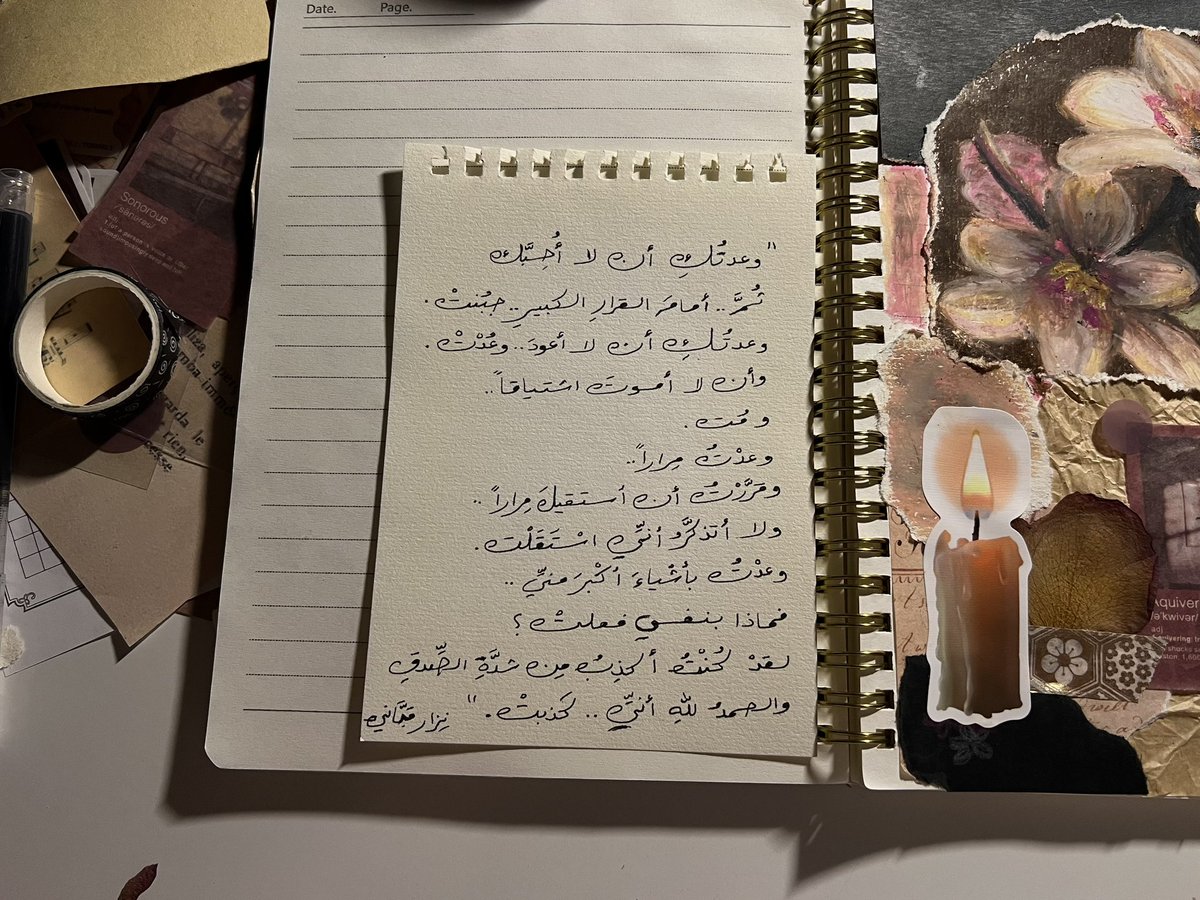 Date. Page.
"وعدتُكِ أن لا أُحِبَّكِ
ثُمَّ.. أمامَ القرارِ الكبيرِ.. جبُنتْ.
وعدتُكِ أن لا أعودَ.. وعُدْتْ.
وأن لا أموتَ اشتياقاً..
ومُت.
وعدْتُ مِراراً..
وقرَّرْتُ أن أستقيلَ مِراراً..
ولا أتذكَّرُ أنِّي اسْتَقَلْت.
وعدْتُ بأشْياءَ أكْبرَ منِّي..
فماذا بنفسي فعلتْ؟
لقدْ كُنْتُ أكذِبُ مِن شدَّةِ الصِّدقِ
والحمدُ للهِ أنِّي.. كذبتْ." نِزار قبَّاني
Sonorous
adj.
Aquiver
/ə'kwivər/
adj